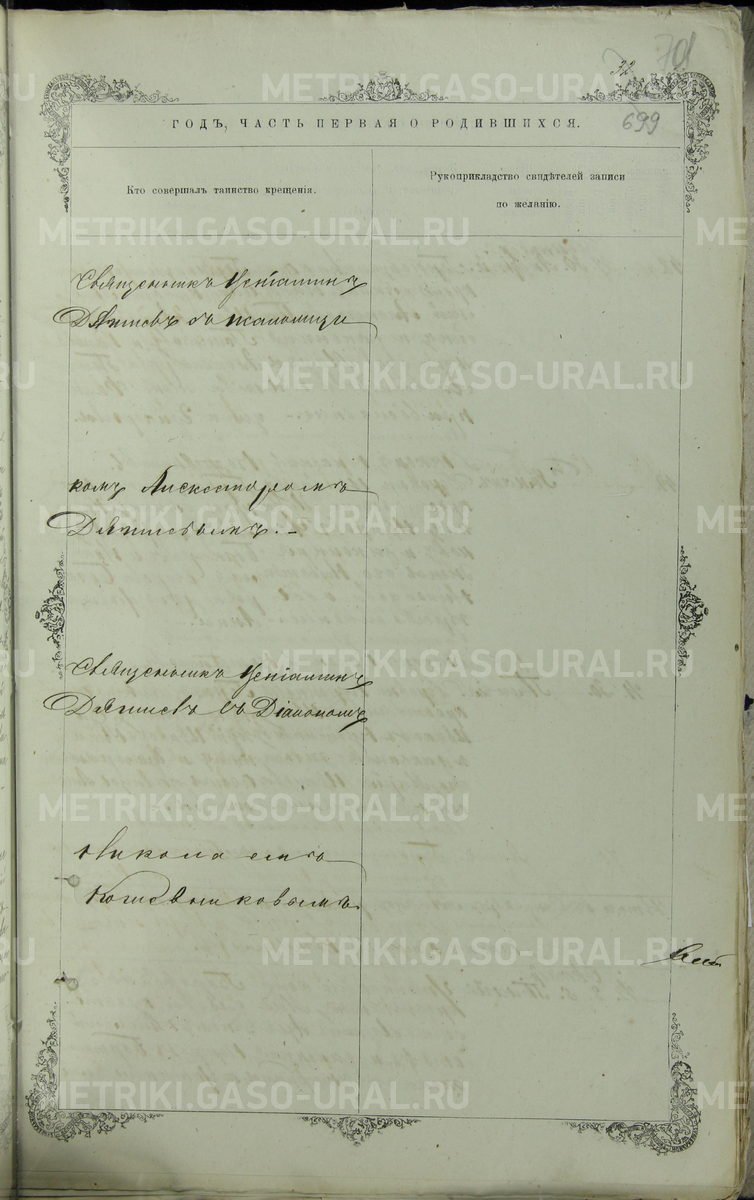 32
701
699
ГОДЪ, ЧАСТЬ ПЕРВАЯ О РОДИВШИХСЯ.
Кто совершалъ таинство крещенія.
Рукоприкладство свидѣтелей записи
по желанію.
Священникъ Веніаминъ
съ псаломщи
комъ Александромъ
Священникъ Веніаминъ
съ Діакономъ
Николаемъ
Кожевниковымъ
METRIKI.GASO-URAL.RU